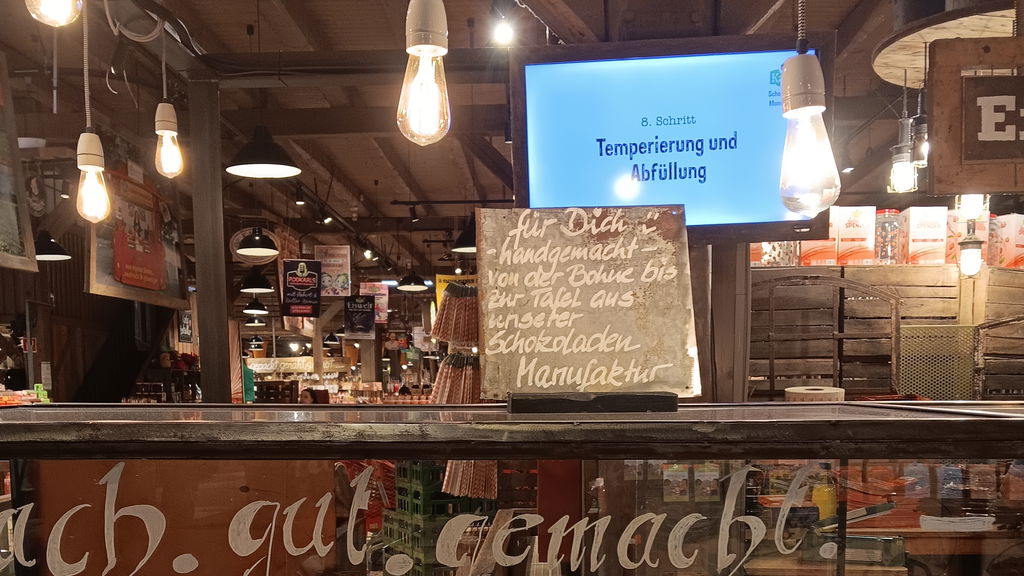 8. Schritt
Temperierung und
Abfüllung
für Dich :
- handgemacht -
von der Bohne bis
zur Tafel aus
unserer
Schokoladen
Manufaktur
ach. gut. gemacht.